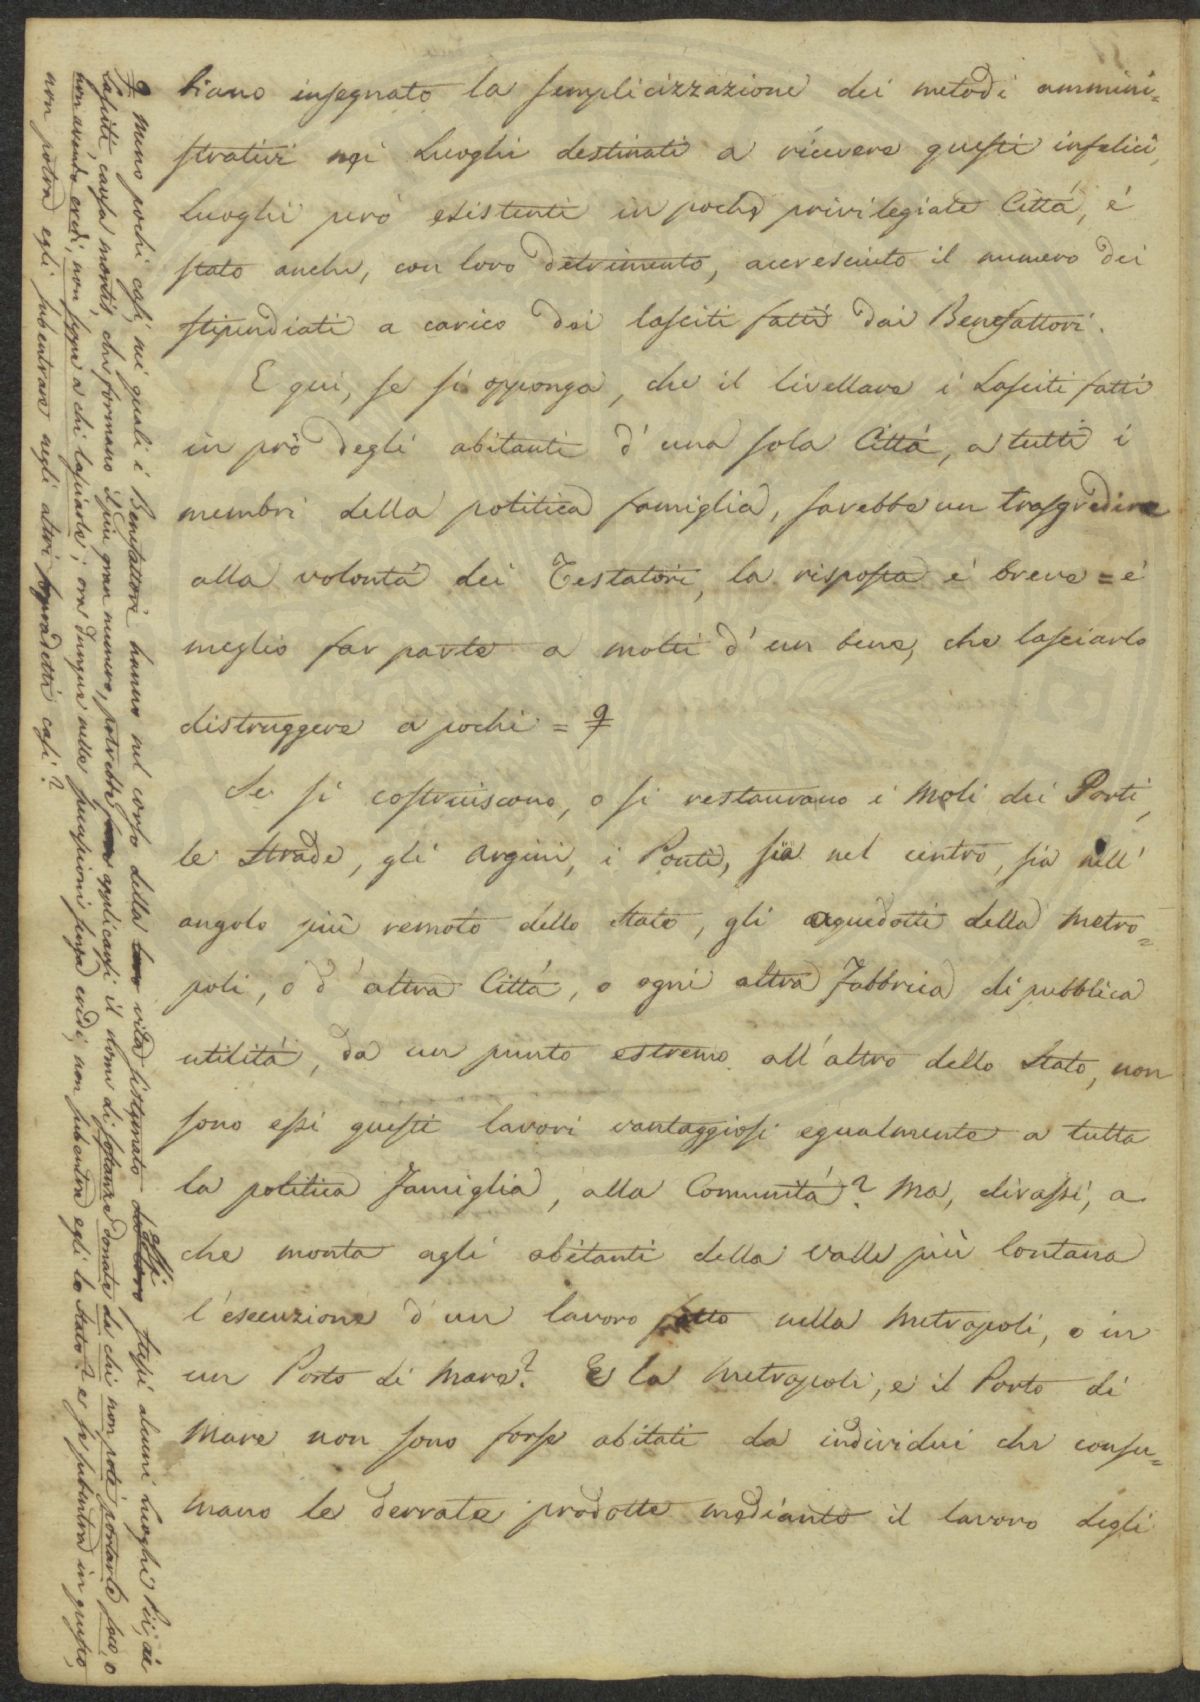 biano insegnato la semplicizzazione dei metodi ammini=
strativi nei Luoghi destinati a ricevere questi infelici,
Luoghi però esistenti in poche privilegiate Cittá, é
stato anche, con loro detrimento, accresciuto il numero dei
stipendiati a carico dei lasciti fatti dai Benefattori.
E qui, se si opponga, che il livellare i Lasciti fatti
in prò degli abitanti d'una sola Cittá, a tutti i
membri della politica famiglia, sarebbe un trasgredire
alla volontá dei Testatori, la risposta é breve = é
meglio far parte a molti d'un bene, che lasciarlo
distruggere a pochi =
Se si costruiscono, o si restaurano i Moli dei Porti,
le Strade, gli Argini, i Ponti, sia nel centro, sia nell'
angolo più remoto dello Stato, gli aquedotti della Metro=
poli, o d'altra Cittá, o ogni altra Fabbrica di pubblica
utilitá, da un punto estremo all'altro dello Stato, non
sono essi questi lavori vantaggiosi egualmente a tutta
la politica Famiglia, alla Comunitá? Ma, dirassi, a
che monta agli abitanti della valle più lontana
l'esecuzione d'un lavoro fatto nella Metropoli, o in
un Porto di Mare? E la Metropoli, e il Porto di
Mare non sono forse abitati da individui che consu=
mano le derrate prodotte mediante il lavoro degli
Meno pochi casi, nei quali i Benefattori hanno nel corso della loro vita sistemato essi stessi alcuni Luoghi Pii, ai
Lasciti, causa mortis, che formano il più gran numero, potrebbe applicarsi il nome di sostanza donata da chi non poté portarla seco, o
non avendo eredi, non seppe a chi lasciarla; ora dunque nelle successioni senza eredi, non subentra egli lo Stato? e se subentra in queste,
non potrà egli subentrare negli altri sopradetti casi?